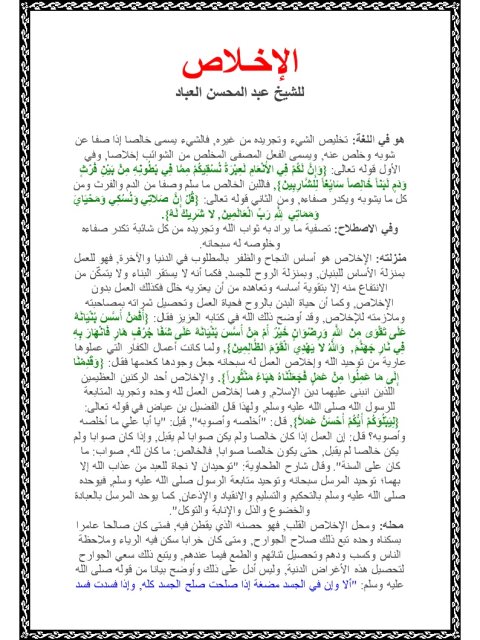 الإخـلاص
للشيخ عبد المحسن العباد
هو في اللغة: تخليص الشيء وتجريده من غيره، فالشيء يسمى خالصا إذا صفا عن
شوبه وخلص عنه، ويسمى الفعل المصفى المخلص من الشوائب إخلاصا، وفي
الأول قوله تعالى: {وَإِنَّ لَكُمْ فِي الْأَنْعَامِ لَعِبْرَةً نُسْقِيكُمْ مِمَّا فِي بُطُونِهِ مِنْ بَيْنِ فَرْثٍ
وَدَمٍ لَبَناً خَالِصاً سَائِغاً لِلشَّارِبِينَ}، فاللبن الخالص ما سلم وصفا من الدم والفرث ومن
كل ما يشوبه ويكدر صفاءه، ومن الثاني قوله تعالى: {قُلْ إِنَّ صَلَاتِي وَنُسُكِي وَمَحْيَايَ
وَمَمَاتِي لِلَّهِ رَبِّ الْعَالَمِينَ, لا شَرِيكَ لَهُ}.
وفي الاصطلاح: تصفية ما يراد به ثواب الله وتجريده من كل شائبة تكدر صفاءه
وخلوصه له سبحانه.
منزلته: الإخلاص هو أساس النجاح والظفر بالمطلوب في الدنيا والآخرة، فهو للعمل
بمنزلة الأساس للبنيان, وبمنزلة الروح للجسد، فكما أنه لا يستقر البناء ولا يتمكّن من
الانتفاع منه إلا بتقوية أساسه وتعاهده من أن يعتريه خلل فكذلك العمل بدون
الإخلاص، وكما أن حياة البدن بالروح فحياة العمل وتحصيل ثمراته بمصاحبته
وملازمته للإخلاص، وقد أوضح ذلك الله في كتابه العزيز فقال: {أَفَمَنْ أَسَّسَ بُنْيَانَهُ
عَلَى تَقْوَى مِنَ اللَّهِ وَرِضْوَانٍ خَيْرٌ أَمْ مَنْ أَسَّسَ بُنْيَانَهُ عَلَى شَفَا جُرُفٍ هَارٍ فَانْهَارَ بِهِ
فِي نَارِ جَهَنَّمَ, وَاللَّهُ لا يَهْدِي الْقَوْمَ الظَّالِمِينَ}، ولما كانت أعمال الكفار التي عملوها
عارية من توحيد الله وإخلاص العمل له سبحانه جعل وجودها كعدمها فقال: {وَقَدِمْنَا
إِلَى مَا عَمِلُوا مِنْ عَمَلٍ فَجَعَلْنَاهُ هَبَاءً مَنْثُوراً}. والإخلاص أحد الركنين العظيمين
اللذين انبنى عليهما دين الإسلام, وهما إخلاص العمل لله وحده وتجريد المتابعة
للرسول الله صلى الله عليه وسلم, ولهذا قال الفضيل بن عياض في قوله تعالى:
{لِيَبْلُوَكُمْ أَيُّكُمْ أَحْسَنُ عَمَلاً}، قال: "أخلصه وأصوبه". قيل: "يا أبا علي ما أخلصه
وأصوبه؟ قال: إن العمل إذا كان خالصا ولم يكن صوابا لم يقبل، وإذا كان صوابا ولم
يكن خالصا لم يقبل، حتى يكون خالصا صوابا، فالخالص: ما كان لله, صواب: ما
كان على السنة". وقال شارح الطحاوية: "توحيدان لا نجاة للعبد من عذاب الله إلا
بهما؛ توحيد المرسل سبحانه وتوحيد متابعة الرسول صلى الله عليه وسلم, فيوحده
صلى الله عليه وسلم بالتحكيم والتسليم والانقياد والإذعان, كما يوحد المرسل بالعبادة
والخضوع والذل والإنابة والتوكل".
محله: ومحل الإخلاص القلب، فهو حصنه الذي يقطن فيه, فمتى كان صالحا عامرا
بسكناه وحده تبع ذلك صلاح الجوارح, ومتى كان خرابا سكن فيه الرياء وملاحظة
الناس وكسب ودهم وتحصيل ثنائهم والطمع فيما عندهم, ويتبع ذلك سعي الجوارح
لتحصيل هذه الأغراض الدنية, وليس أدل على ذلك وأوضح بيانا من قوله صلى الله
عليه وسلم: "ألا وإن في الجسد مضغة إذا صلحت صلح الجسد كله, وإذا فسدت فسد